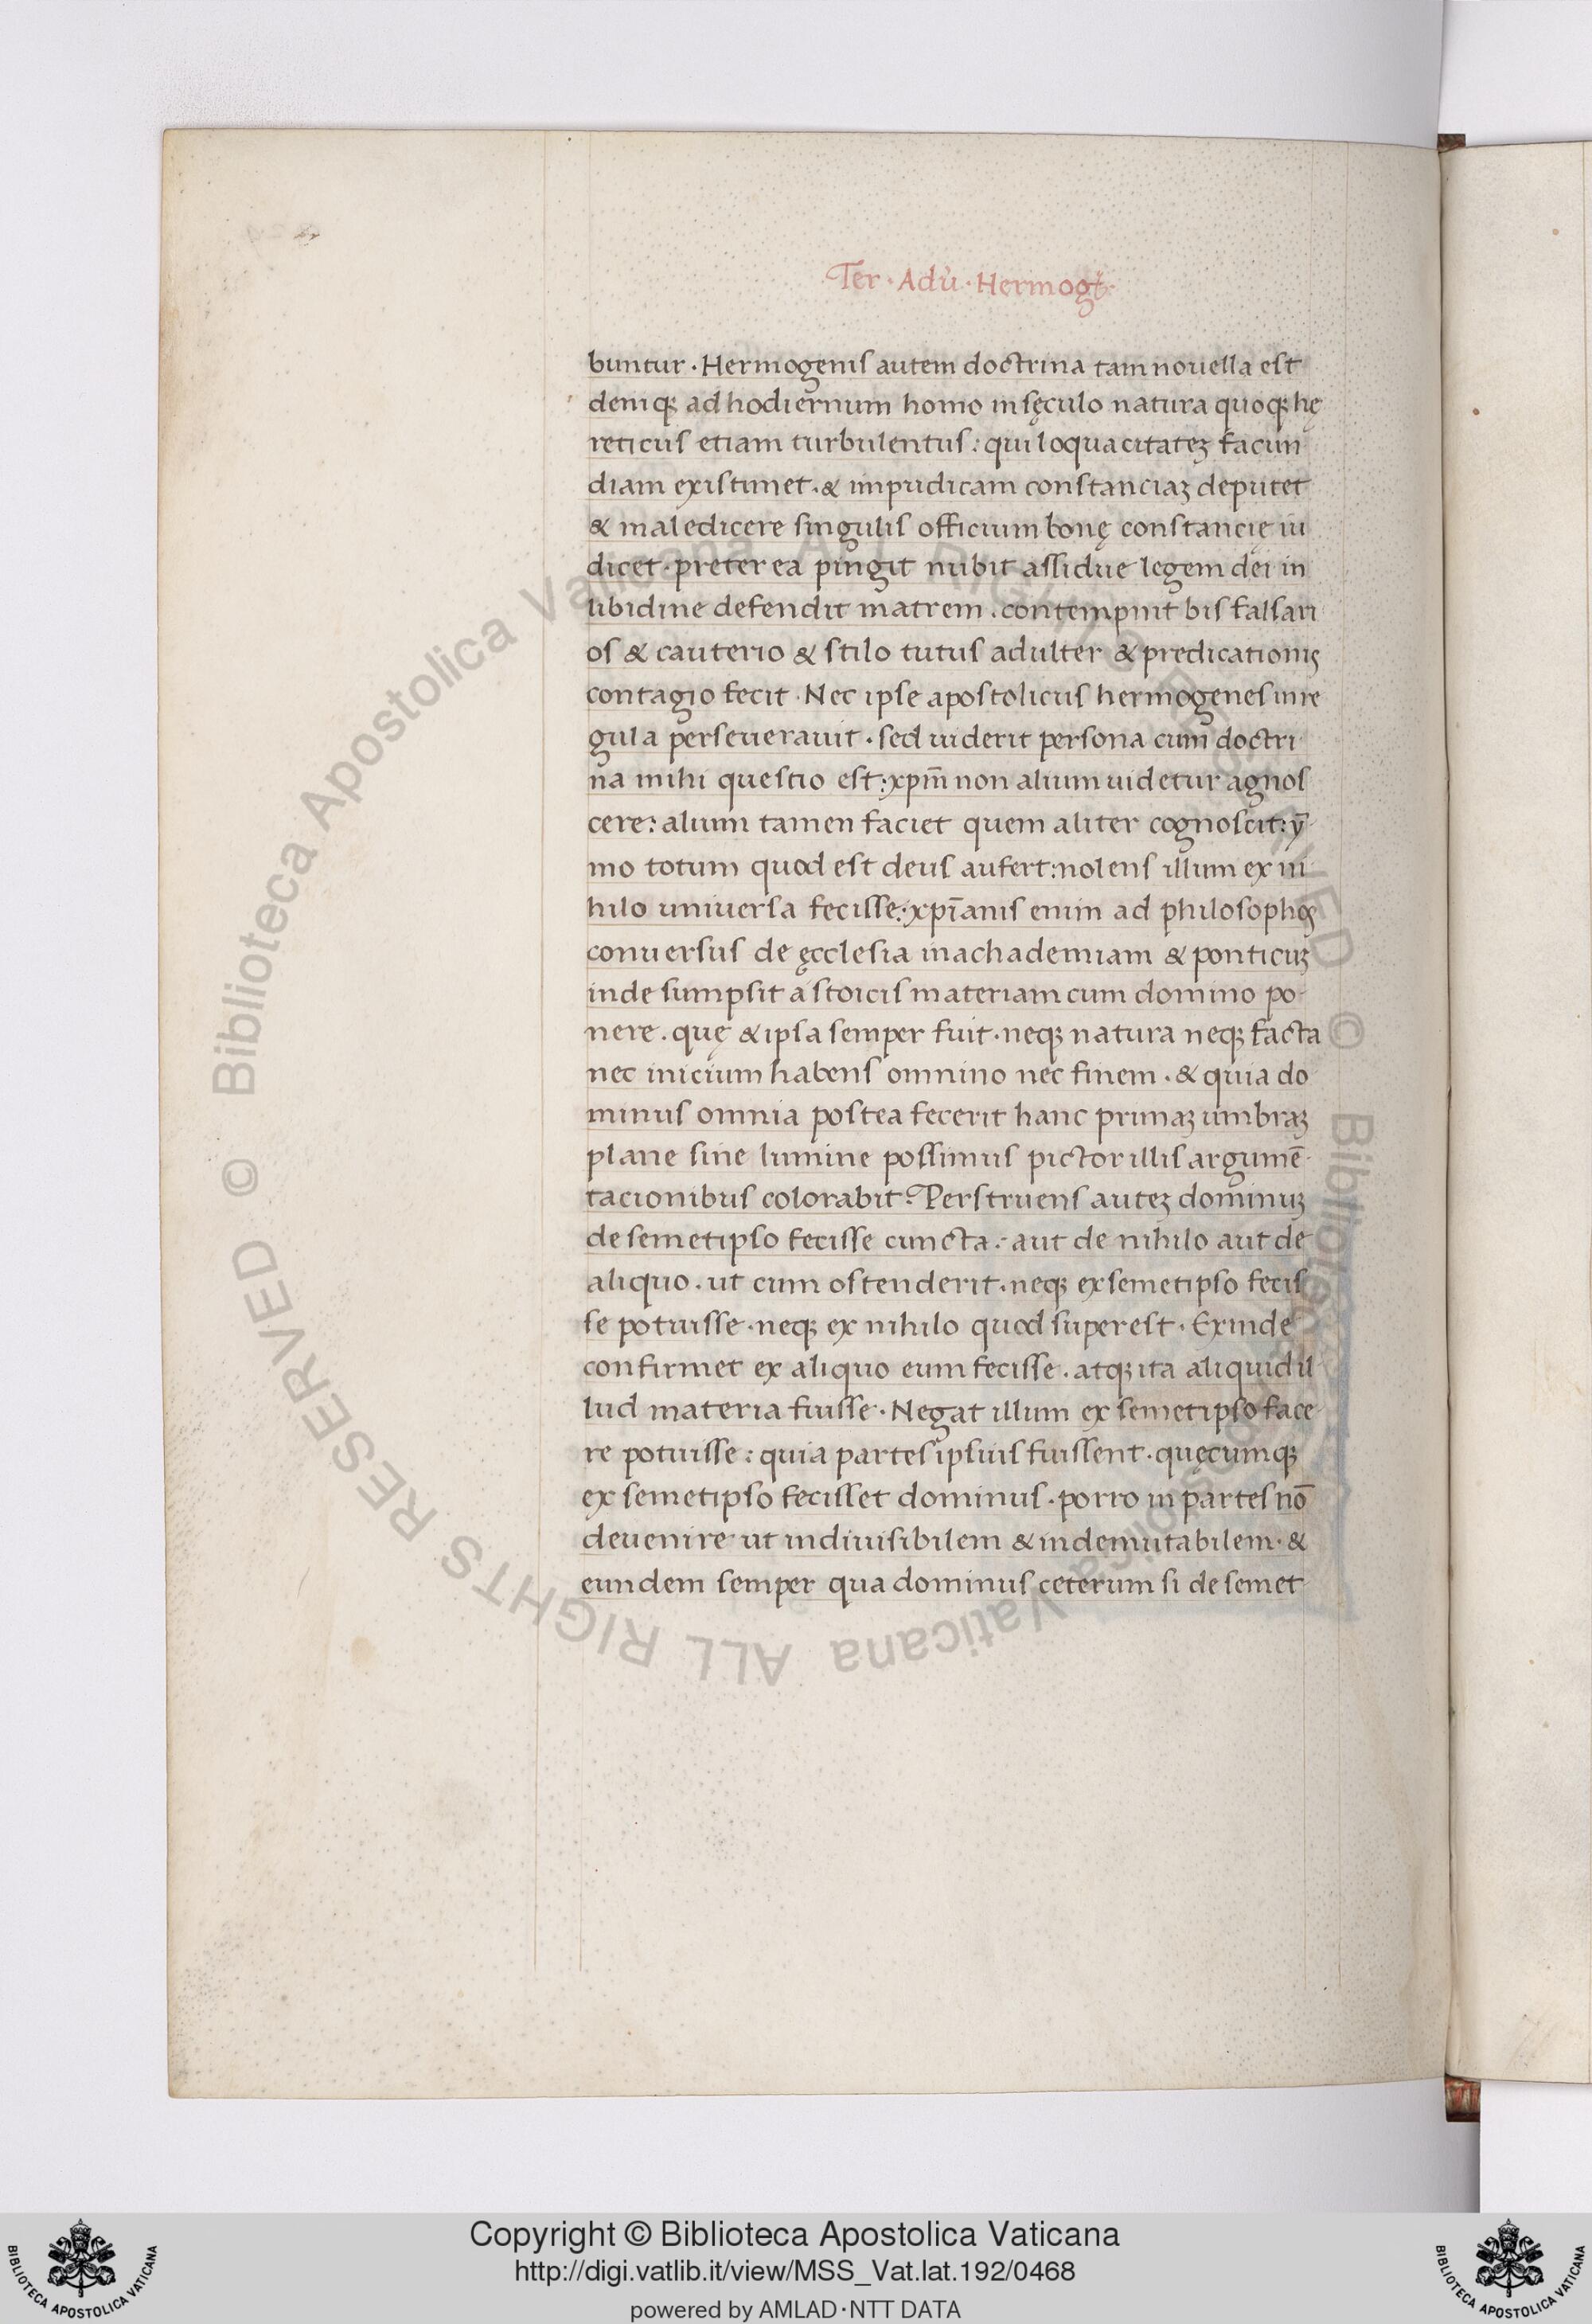 Ter · Adu̓ · Hermog
buntur · Hermogenis autem doctrina tam nouella est
deniqꝫ ad hodiernum homo in sęculo natura quoqꝫ hę
reticus etiam turbulentus : qui loquacitateꝫ facun
diam existimet · & impudicam constanciaꝫ deputet
& maledicere singulis officium bonę constancię iu
dicet · preterea pingit nubit assidue legem dei in
libidine defendit matrem . contempnit bis falsari
os & cauterio & stilo tutus adulter & predicationis
contagio fecit · Nec ipse apostolicus hermogenes in re
gula perseuerauit · sed uiderit persona cum doctri
na mihi questio est : xpm̄ non alium uidetur agnos
cere : alium tamen faciet quem aliter cognoscit : ȳ
mo totum quod est deus aufert : nolens illum ex ni
hilo uniuersa fecisse : xpīanis enim ad philosophos
conuersus de ęcclesia in achademiam & ponticuꝫ
inde sumpsit a stoicis materiam cum domino po-
nere . quę & ipsa semper fuit · neqꝫ natura neqꝫ facta
nec inicium habens omnino nec finem . & quia do
minus omnia postea fecerit hanc primaꝫ umbraꝫ
plane sine lumine possimus pictor illis argumē-
tacionibus colorabit : Perstruens auteꝫ dominuꝫ
de semetipso fecisse cuncta : aut de nihilo aut de
aliquo . ut cum ostenderit . neqꝫ ex semetipso fecis
se potuisse · neqꝫ ex nihilo quod superest · Exinde
confirmet ex aliquo eum fecisse . atqꝫ ita aliquid il
lud materia fuisse · Negat illum ex semetipso face
re potuisse : quia partes ipsius fuissent · quęcumqꝫ
ex semetipso fecisset dominus · porro in partes nō
deuenire ut indiuisibilem & indemutabilem · &
eundem semper qua dominus ceterum si de semet
© Biblioteca Apostolica Vaticana ALL RIGHTS RESERVED
© Biblioteca Apostolica Vaticana ALL RIGHTS RESERVED
Copyright © Biblioteca Apostolica Vaticana
http://digi.vatlib.it/view/MSS_Vat.lat.192/0468
powered by AMLAD·NTT DATA
BIBLIOTECA APOSTOLICA VATICANA
BIBLIOTECA APOSTOLICA VATICANA